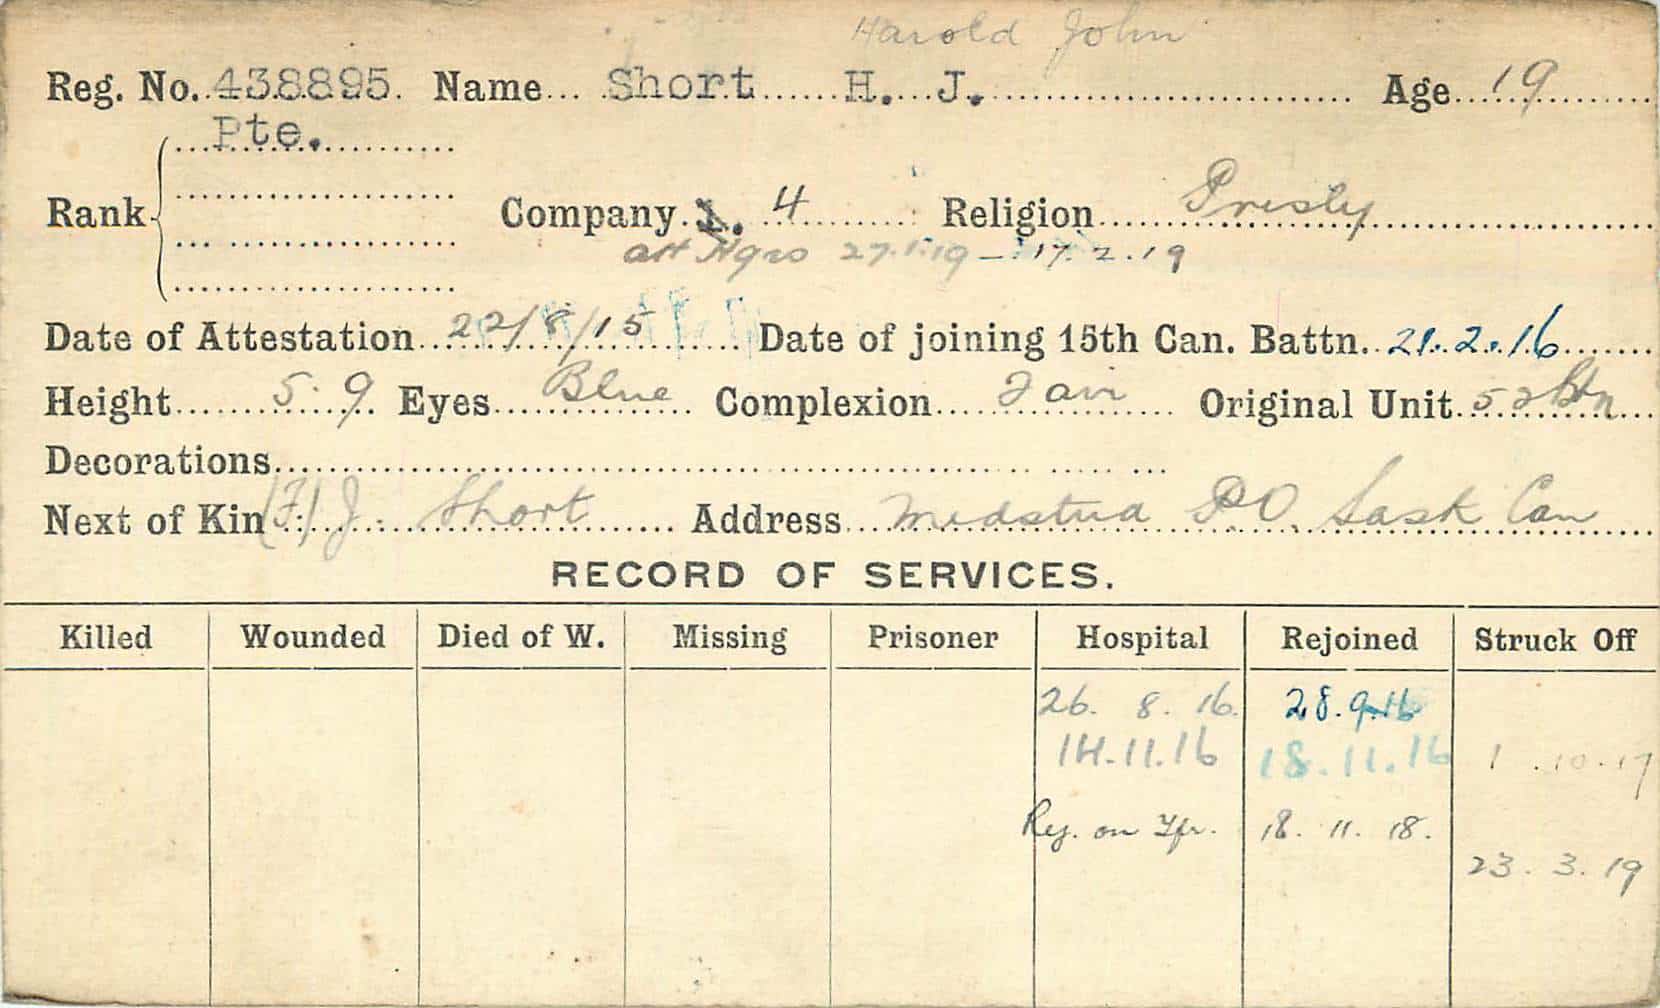 Harold John
Reg. No. 438895. Name Short H. J. Age 19
Pte.
Rank Company 1. 4 Religion Presby
att Hqrs 27.1.19 - 17.2.19
Date of Attestation 22/8/15 Date of joining 15th Can. Battn. 21.2.16
Height 5.9. Eyes Blue Complexion Fair Original Unit 52 Btn
Decorations
Next of Kin (F) J. Short Address PO Sask Can
RECORD OF SERVICES.
Killed Wounded Died of W. Missing Prisoner Hospital Rejoined Struck Off
26. 8. 16. 28.9.16
14.11.16 18.11.16 1.10.17
Rej. on Tfr. 18. 11. 18.
23. 3. 19